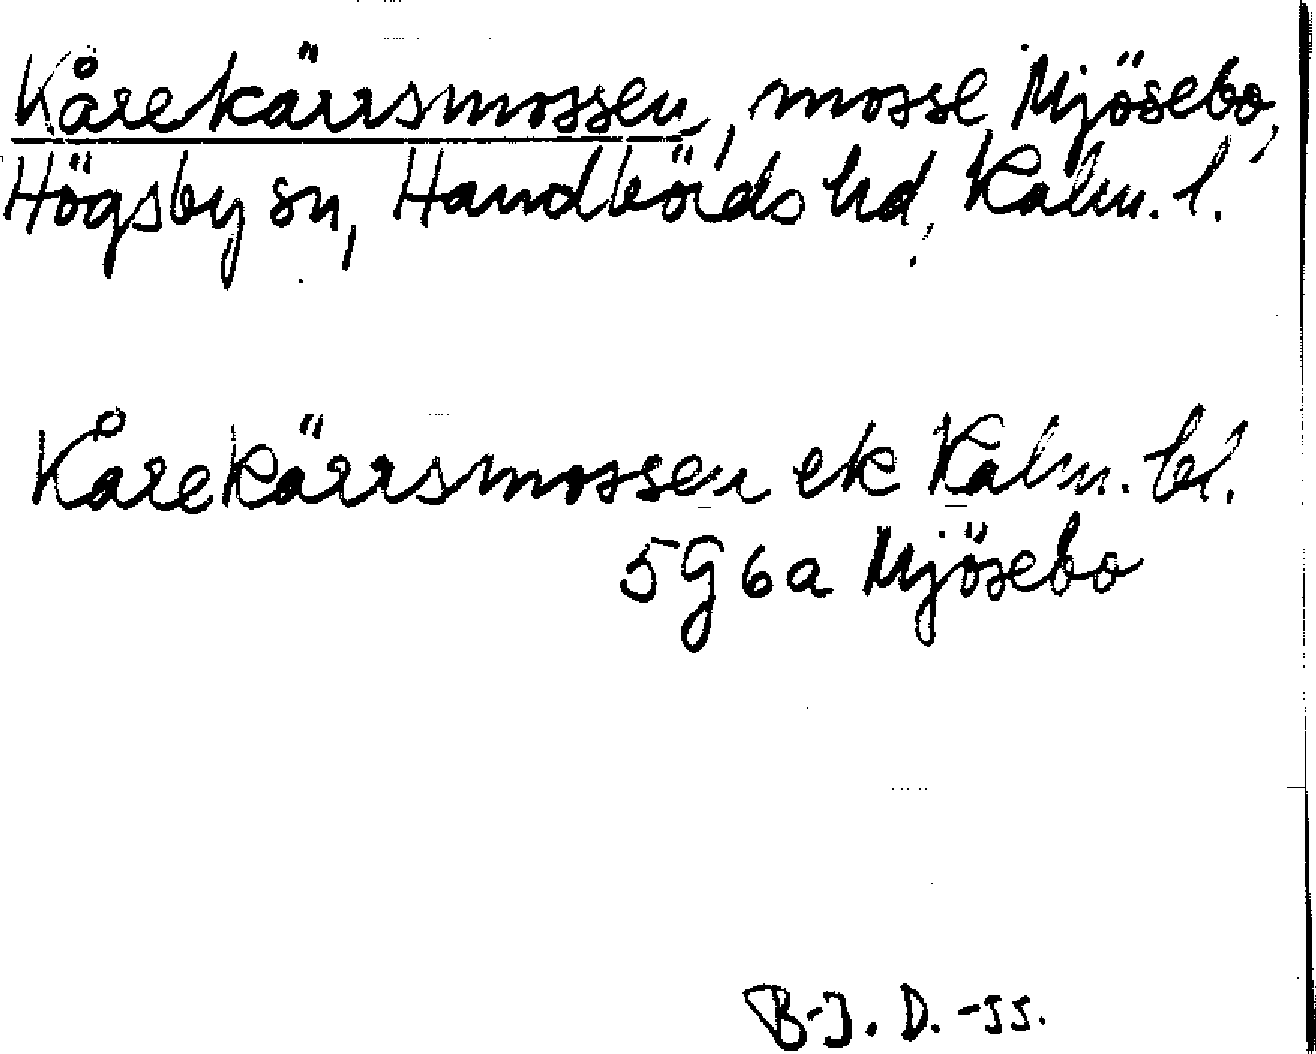 Kårekärrsmossen, mosse, Mjösebo,
Högsby sn, Handbörds hd, Kalm. l.
Kårekärrsmossen ek Kalm. bl.
5G6a Mjösebo
B-J. D. -55.